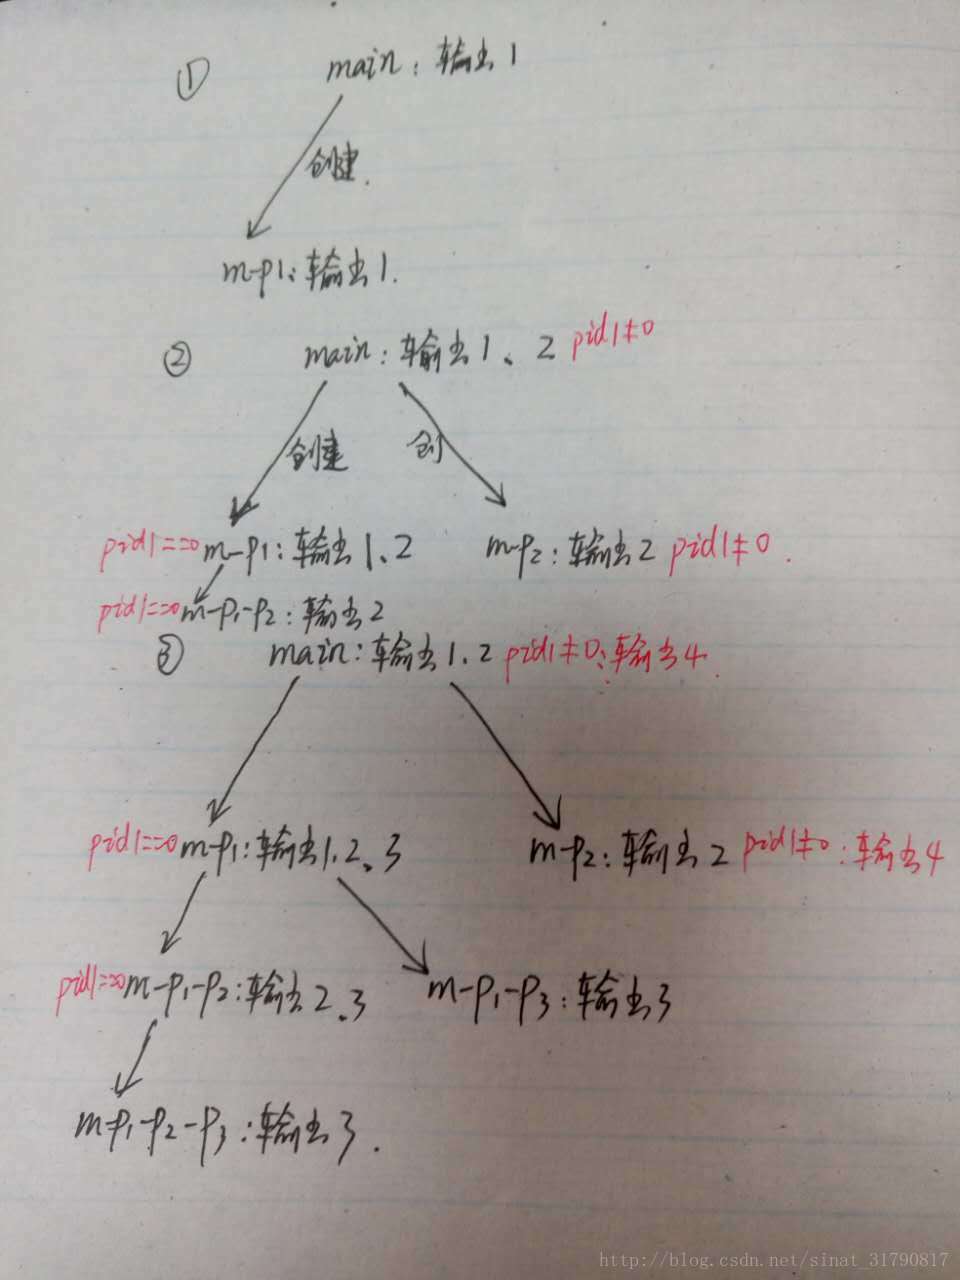 ① main: 输出1
创建.
m-p1: 输出1.
② main: 输出1、2 pid1≠0
创建 创
pid1==0 m-p1: 输出1、2 m-p2: 输出2 pid1≠0.
pid1==0 m-p1-p2: 输出2
③ main: 输出1、2 pid1≠0: 输出4.
pid1==0 m-p1: 输出1、2、3 m-p2: 输出2 pid1≠0: 输出4
pid1==0 m-p1-p2: 输出2、3 m-p1-p3: 输出3
m-p1-p2-p3: 输出3.
http://blog.csdn.net/sinat_31790817